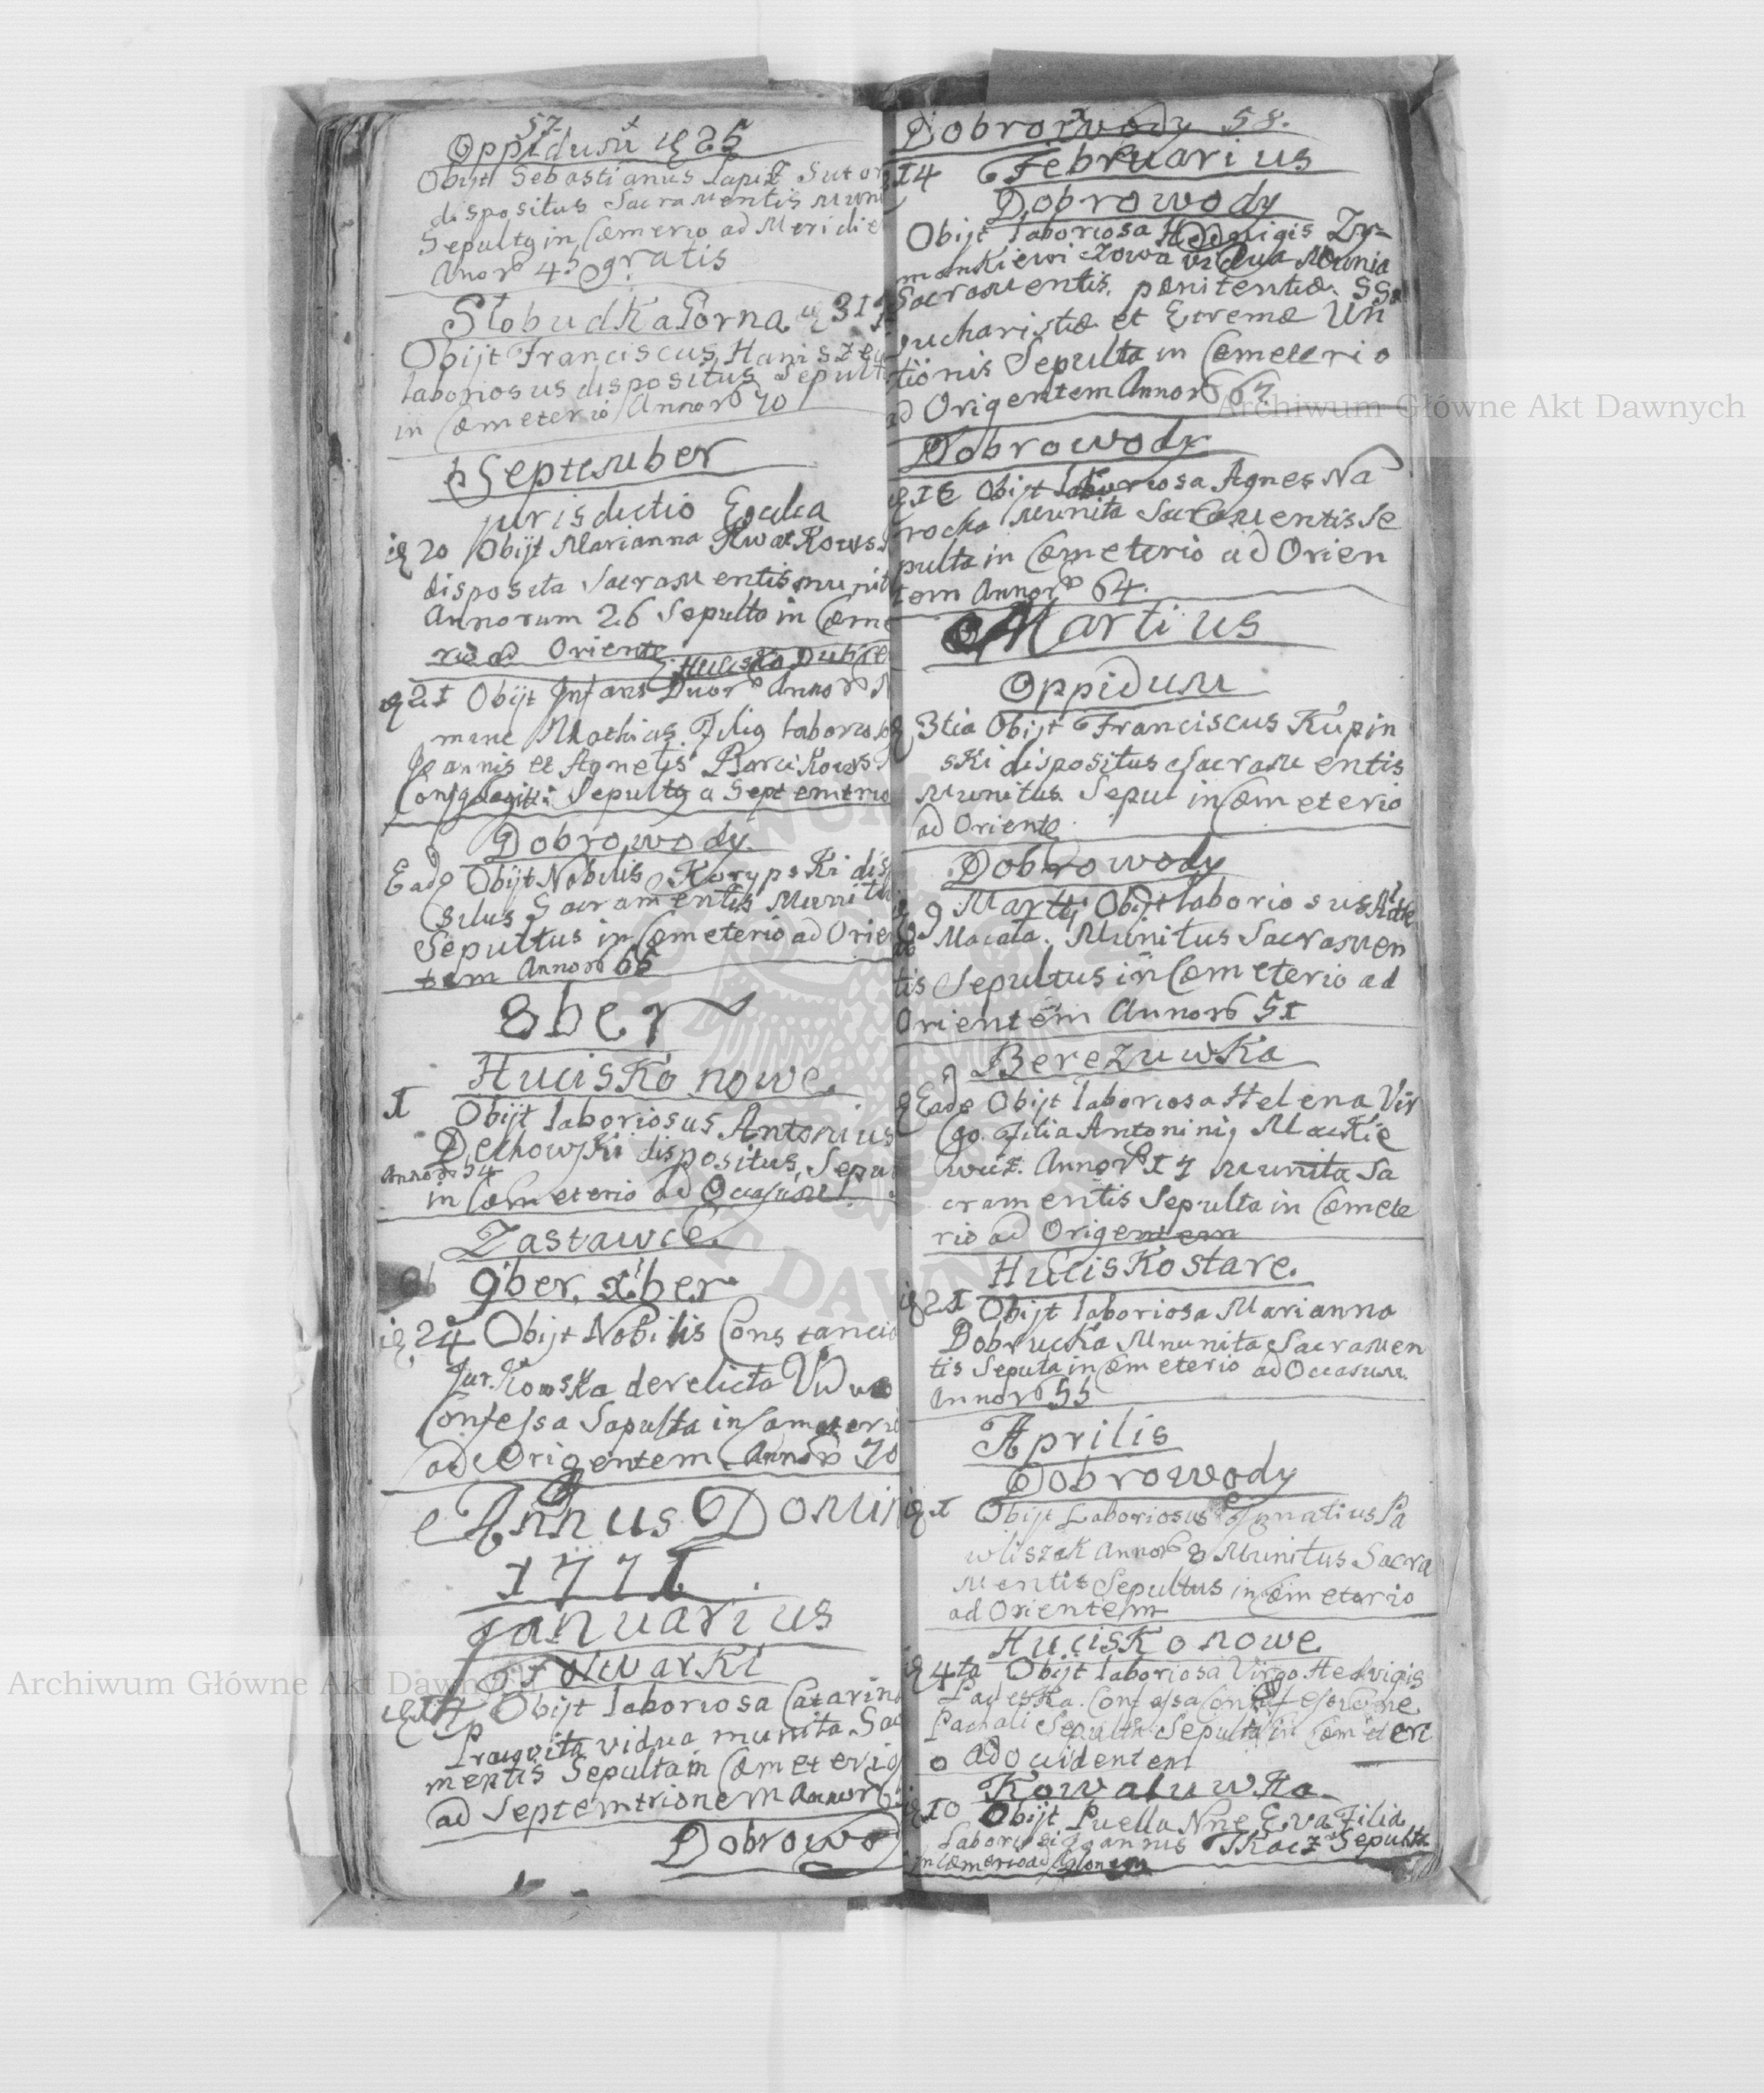 57
Oppidum 25
Obijt Sebastianus Sutor
dispositus Sacramentis Muni
in Cæmerio ad Meridie
4 gratis
SłobudKa Gorna 31
Obijt Franciscus
laboriosus dispositus Sepult
in Cæmeterio Annor 70
September
jurisdictio
20 Obijt Marianna
disposita Sacramentis munit
Annorum 26 Sepulta in Cæme
rio ad Oriente
HucisKo
21 Obijt Infans Duor Annor
mine Mathias Filig laborio
Joannis et Agnetis
Sepultg a Septemtrio
Dobrowody.
Eade Obijt Nobilis KorypsKi dis
situs Sacramentis Munitu
Sepultus in Cæmeterio ad Orien
tem Annor 66
8ber
HucisKo nowe.
I Obijt laboriosus Antonius
dispositus, Sepu
Annor 54
in Cæmeterio ad Occasum
Zastawce.
9ber, xber
24 Obijt Nobilis Constancia
JurKowsKa derelicta Vidua
Confessa Sepulta in Cameterio
ad Origentem Annor 70
Annus Domin
1771.
Januarius
FolwarKi
Obijt laboriosa Catarina
vidua munita Sac
mentis Sepulta in Cæmeterio
ad Septemtrionem Annor
Dobrowo
Dobrowody 58.
14 Februarius
Dobrowody
Obijt laboriosa Hedvigis Zy-
manKiewiczowa vidua Munia
Sacramentis, pænitentiæ. SS
Eucharistiæ et Extremæ Un
tionis Sepulta in Cæmeterio
ad Origentem Annor 67
Dobrowody
16 Obijt laboriosa Agnes Na
rocka Munita Sacramentis Se
pulta in Cæmeterio ad Orien
tem Annor 64.
Martius
Oppidum
3tia Obijt Franciscus Kupin
sKi dispositus Sacramentis
Munitus. Sepul in Cæmeterio
ad Oriente
Dobrowody
9 Martij Obijt laboriosus
Macala. Munitus Sacramen
tis Sepultus in Cæmeterio ad
Orientem Annor 51
BerezuwKa
Eade Obijt laboriosa Helena Vir
go. Filia MacKie
wicz. Annor 17 munita Sa
cramentis Sepulta in Cæmete
rio ad Origentem
HucisKo stare.
21 Obijt laboriosa Marianna
DobrucKa Mnunita Sacramen
tis Seputa in Cæmeterio ad Occasum.
Annor 55
Aprilis
Dobrowody
I Obijt Laboriosus Ignatius Pa
wliszak Annor 8 Munitus Sacra
mentis Sepultus in Cæmeterio
ad Orientem
HucisKo nowe
4ta Obijt laboriosa Virgo Hedvigis
Confessa Confessione
Pachali Sepulta in Cæmeteri
o ad ocidentem
KowaluwKa.
10 Obijt Puella Nne Eva Filia
Laboriosi Joannis TKacz Sepulta
in Cæmerio ad
Archiwum Główne Akt Dawnych
Archiwum Główne Akt Dawnych